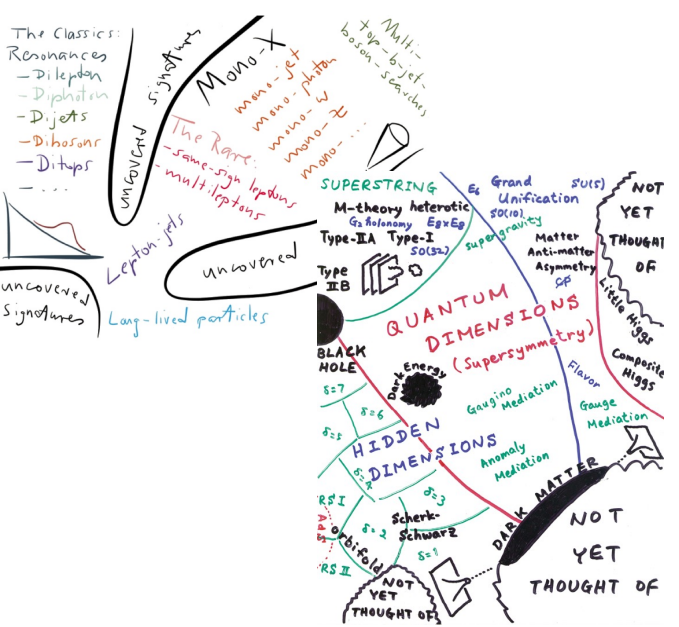 The Classics:
Resonances
- Dilepton
- Diphoton
- Dijets
- Dibosons
- Ditops
- ...
uncovered signatures
Mono-X
mono-jet
mono-photon
mono-W
mono-Z
mono-...
Multi-
top-b-jet-
boson-searches
The Rare:
- same-sign leptons
- multileptons
Lepton-jets
uncovered
uncovered
signatures
Long-lived particles
SUPERSTRING
M-theory heterotic
G₂ holonomy E₈xE₈
Type-IIA Type-I
SO(32)
Type
IIB
E₆ Grand
Unification
SU(5)
SO(10)
supergravity
Matter
Anti-matter
Asymmetry
CP
NOT
YET
THOUGHT
OF
Little Higgs
Composite
Higgs
QUANTUM
DIMENSIONS
(Supersymmetry)
BLACK
HOLE
Dark Energy
Flavor
Gaugino
Mediation
Gauge
Mediation
Anomaly
Mediation
δ=7
δ=6
δ=5
δ=4
HIDDEN
DIMENSIONS
δ=3
RS I
AdS
δ=2
Scherk-
Schwarz
orbifold
RS II
δ=1
DARK MATTER
NOT
YET
THOUGHT OF
NOT
YET
THOUGHT OF